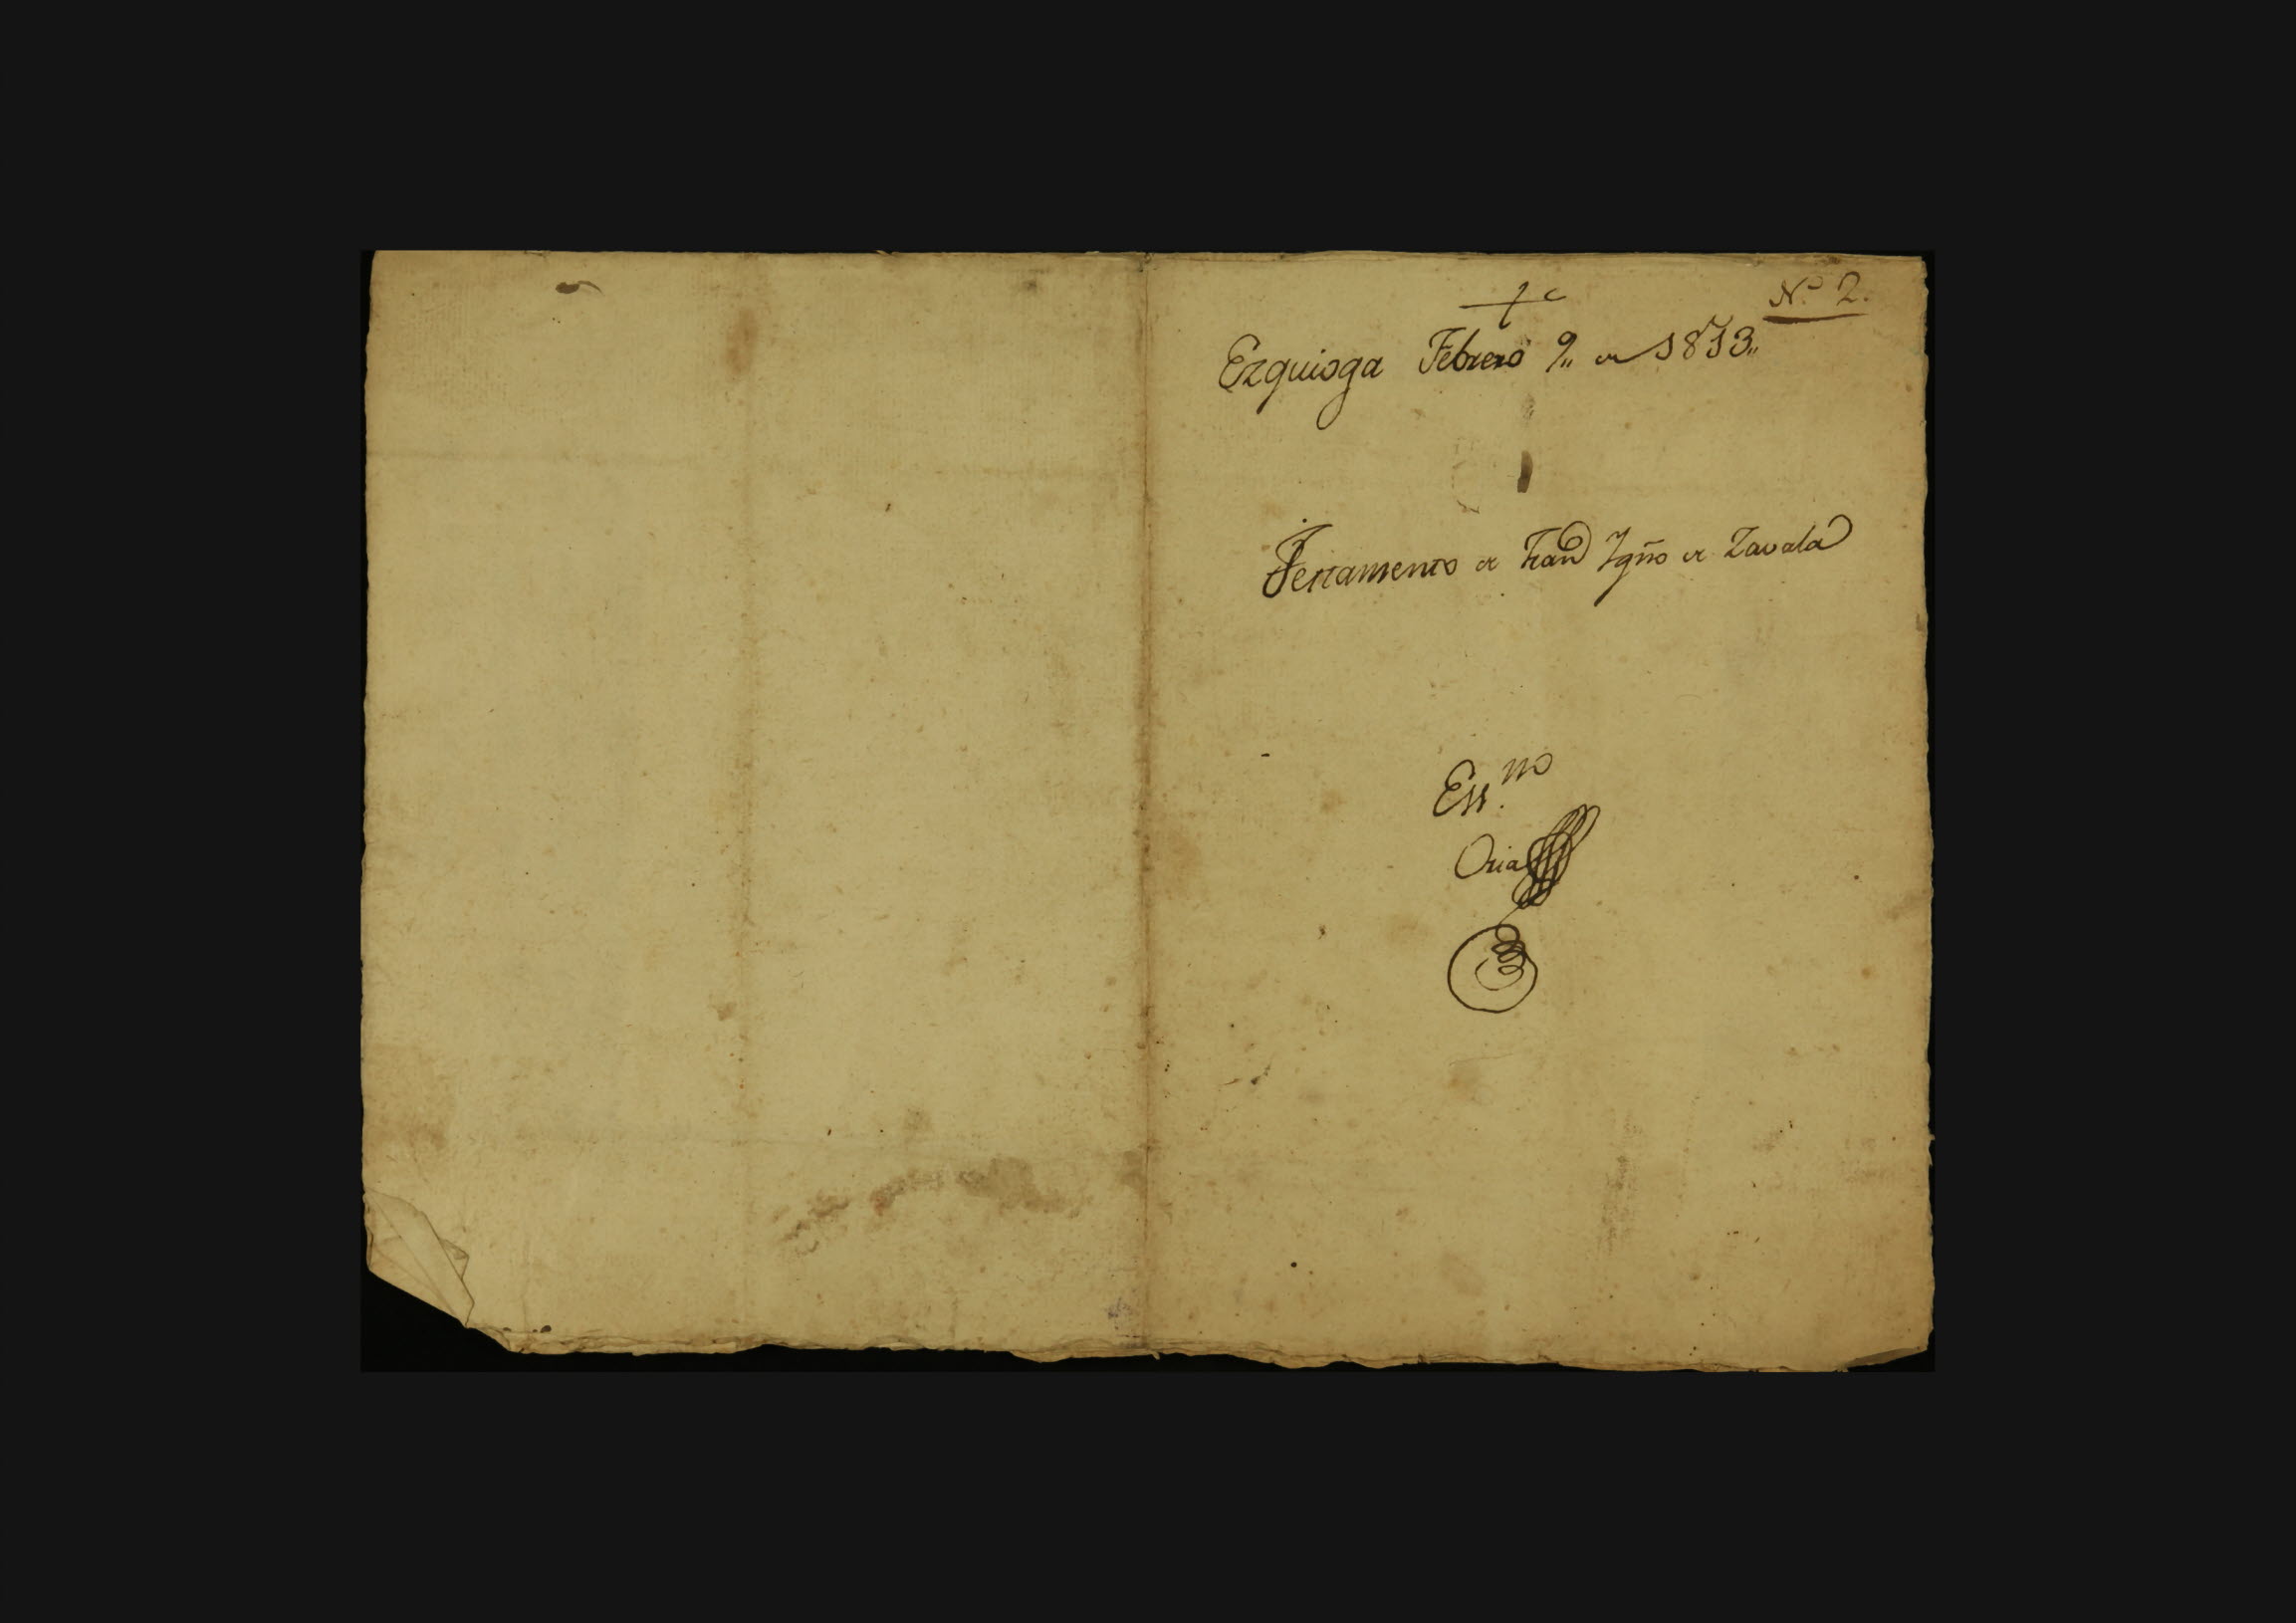 Nº 2.
Ezquioga Febrero 9 de 1813
Testamento de Franco Ygño de Zavala
Essno
Oria